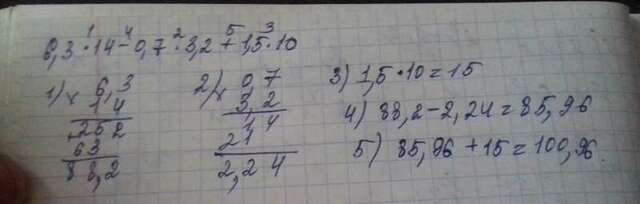 6,3 · 14 - 0,7 · 3,2 + 1,5 · 10
1 4 2 5 3
1) × 6,3
14
+ 252
63
88,2
2) × 0,7
3,2
14
21
2,24
3) 1,5 · 10 = 15
4) 88,2 - 2,24 = 85,96
5) 85,96 + 15 = 100,96.